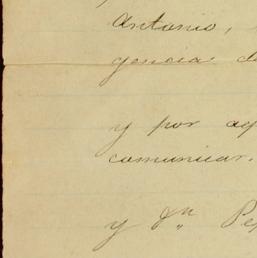 Antonio,
gencia de
y por aq
comunicar.
y Dn Pe